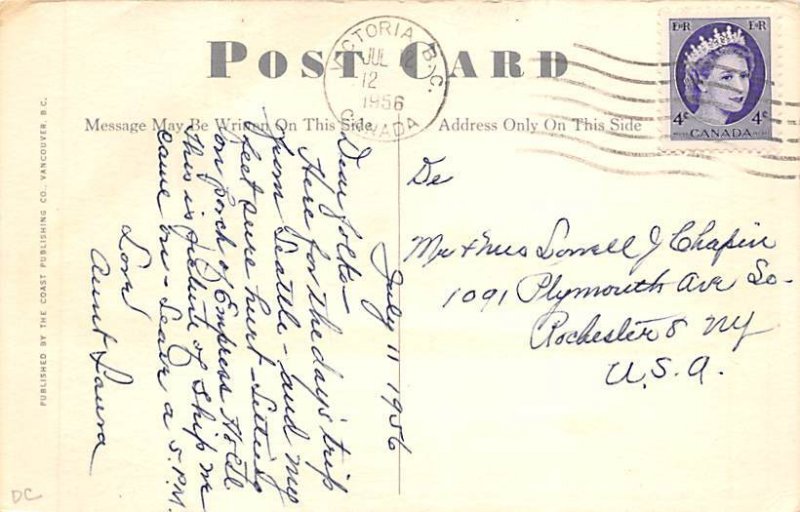 POST CARD
VICTORIA, B.C.
JUL 12
12
1956
CANADA
E II R E II R
4¢ CANADA 4¢
Message May Be Written On This Side
Address Only On This Side
July 11 1956
Dear folks—
Here for the day's trip
from Seattle - and my
feet sure hurt - Sitting
on porch of Empress Hotel
This is picture of ship we
came on - Leave a 5 P.M.
Love
Aunt Laura
De
Mr & Mrs Lowell J Chapin
1091 Plymouth Ave So-
Rochester 8 NY
U.S.A.
PUBLISHED BY THE COAST PUBLISHING CO., VANCOUVER, B.C.
DC